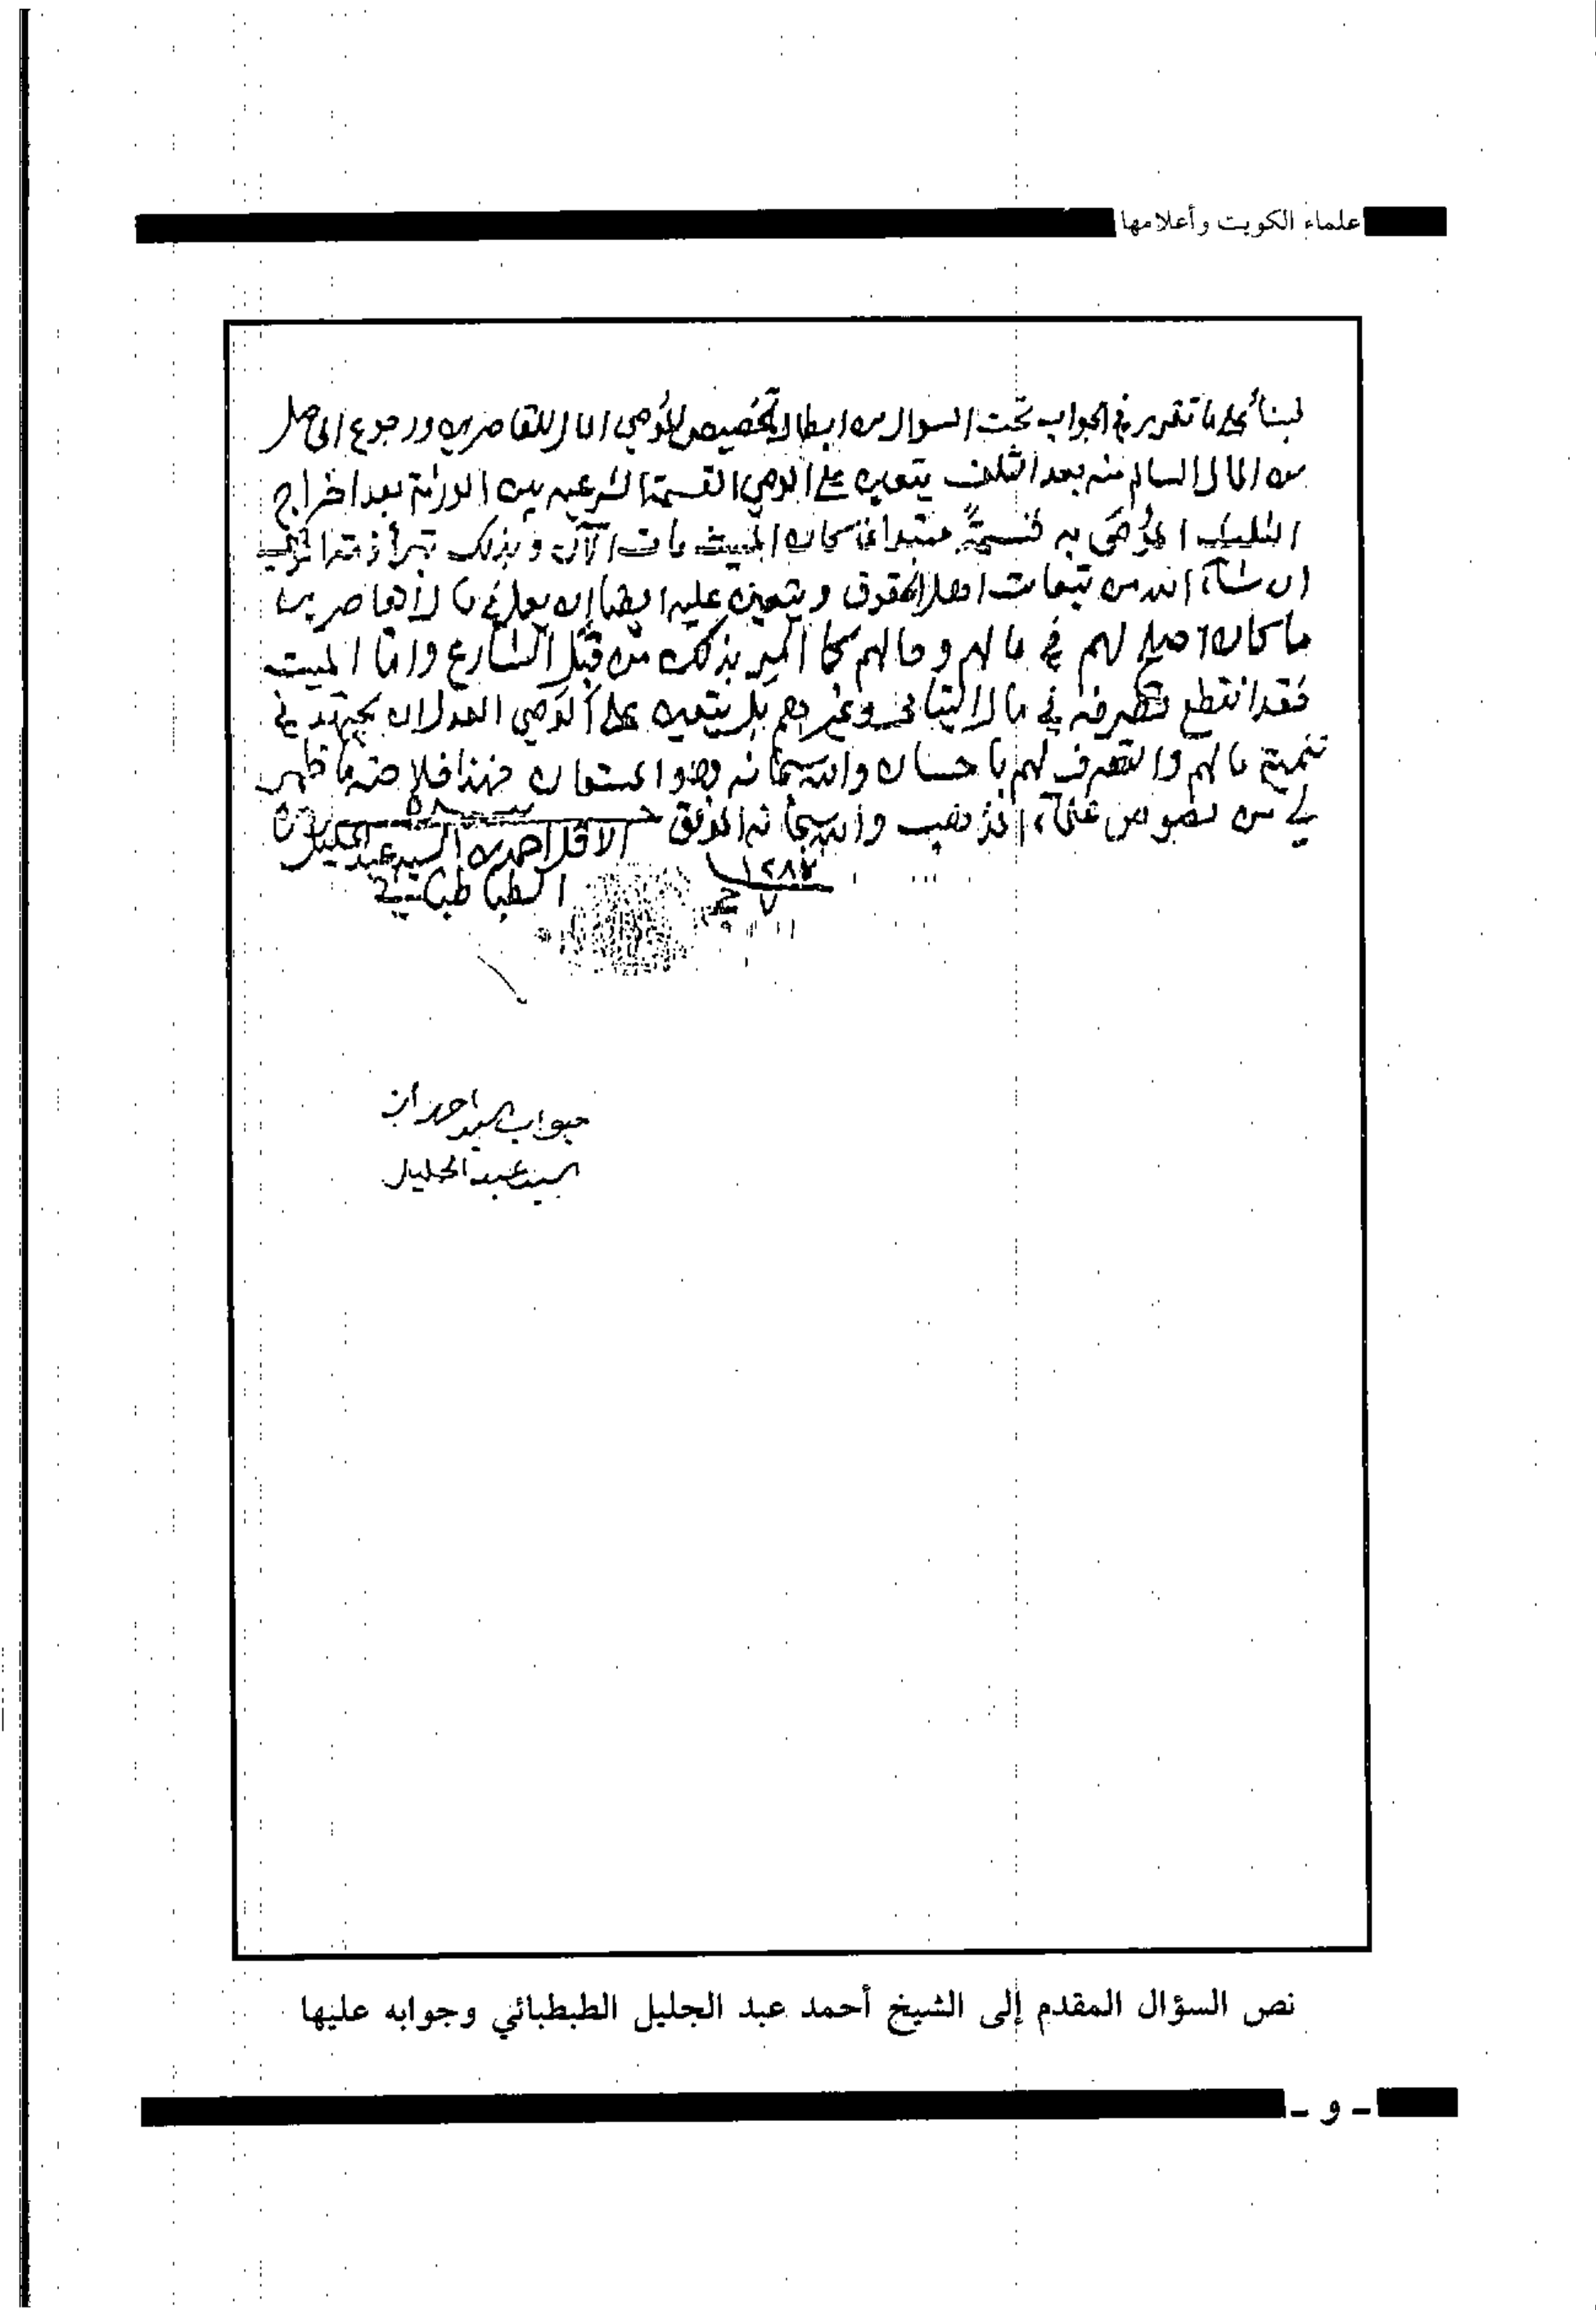 علماء الكويت وأعلامها
تقرر في الجواب تحت السوال من ابطال تخصيص الموصي المال للقاصرين ورجوع الى
من المال السالم منه بعد الثلث يتعين على الوصي القسمة الشرعيه بين الورثة بعد اخراج
الثلث الموصَى به قسمةً كان الميت مات الآن وبذلك تبرأ ذمة
ان شاء الله من تبعات اهل الحقوق ويتعين عليه ايضا ان يعمل في مال القاصرين
ما كان اصلح لهم في مالهم وحالهم كما أُمر بذلك من قِبَل الشارع وامّا الميت
فقد انقطع تصرفه في مال اليتامى وغيرهم بل يتعين على الوصي العدل ان يجتهد في
تنمية مالهم والتصرف لهم باحسان والله سبحانه هو المستعان فهذا خلاصة ما ظهر
لي من نصوص علماء المذهب والله سبحانه الموفق
الاقل احمد بن السيد عبد الجليل
الطباطبائي
١٢٨٧
جواب السيد احمد ابن
السيد عبد الجليل
نص السؤال المقدم إلى الشيخ أحمد عبد الجليل الطبطبائي وجوابه عليها
- و -